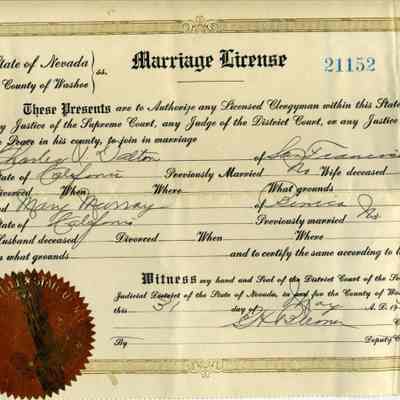 State of Nevada
County of Washoe
ss.
Marriage License
21152
These Presents are to Authorize any Licensed Clergyman within this State
ny Justice of the Supreme Court, any Judge of the District Court, or any Justice
he Peace in his county, to join in marriage
Charley J. Dalton of San Francisco
State of California Previously Married No Wife deceased
Divorced When Where What grounds
nd Mary Murray of Geneva
State of California Previously married No
Husband deceased Divorced When Where
n what grounds and to certify the same according to l
Witness my hand and Seal of the District Court of the Se
Judicial District of the State of Nevada, in and for the County of Wa
this 31 day of May A. D. 19
By
Deputy C